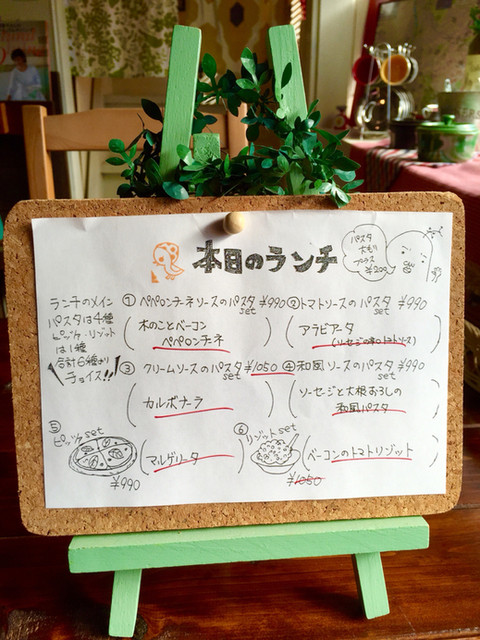 本日のランチ
パスタ
大もり
プラス
¥200
ランチのメイン
パスタは4種
ピッツァ・リゾット
は1種
合計6種より
チョイス!!
① ペペロンチーネソースのパスタ set ¥990
(木のことベーコン
ペペロンチーネ)
② トマトソースのパスタ set ¥990
(アラビアータ
(ソーセージの辛口トマトソース))
③ クリームソースのパスタ set ¥1050
(カルボナーラ)
④ 和風ソースのパスタ set ¥990
(ソーセージと大根おろしの
和風パスタ)
⑤ ピッツァ set
(マルゲリータ)
¥990
⑥ リゾット set
(ベーコンのトマトリゾット)
¥1050